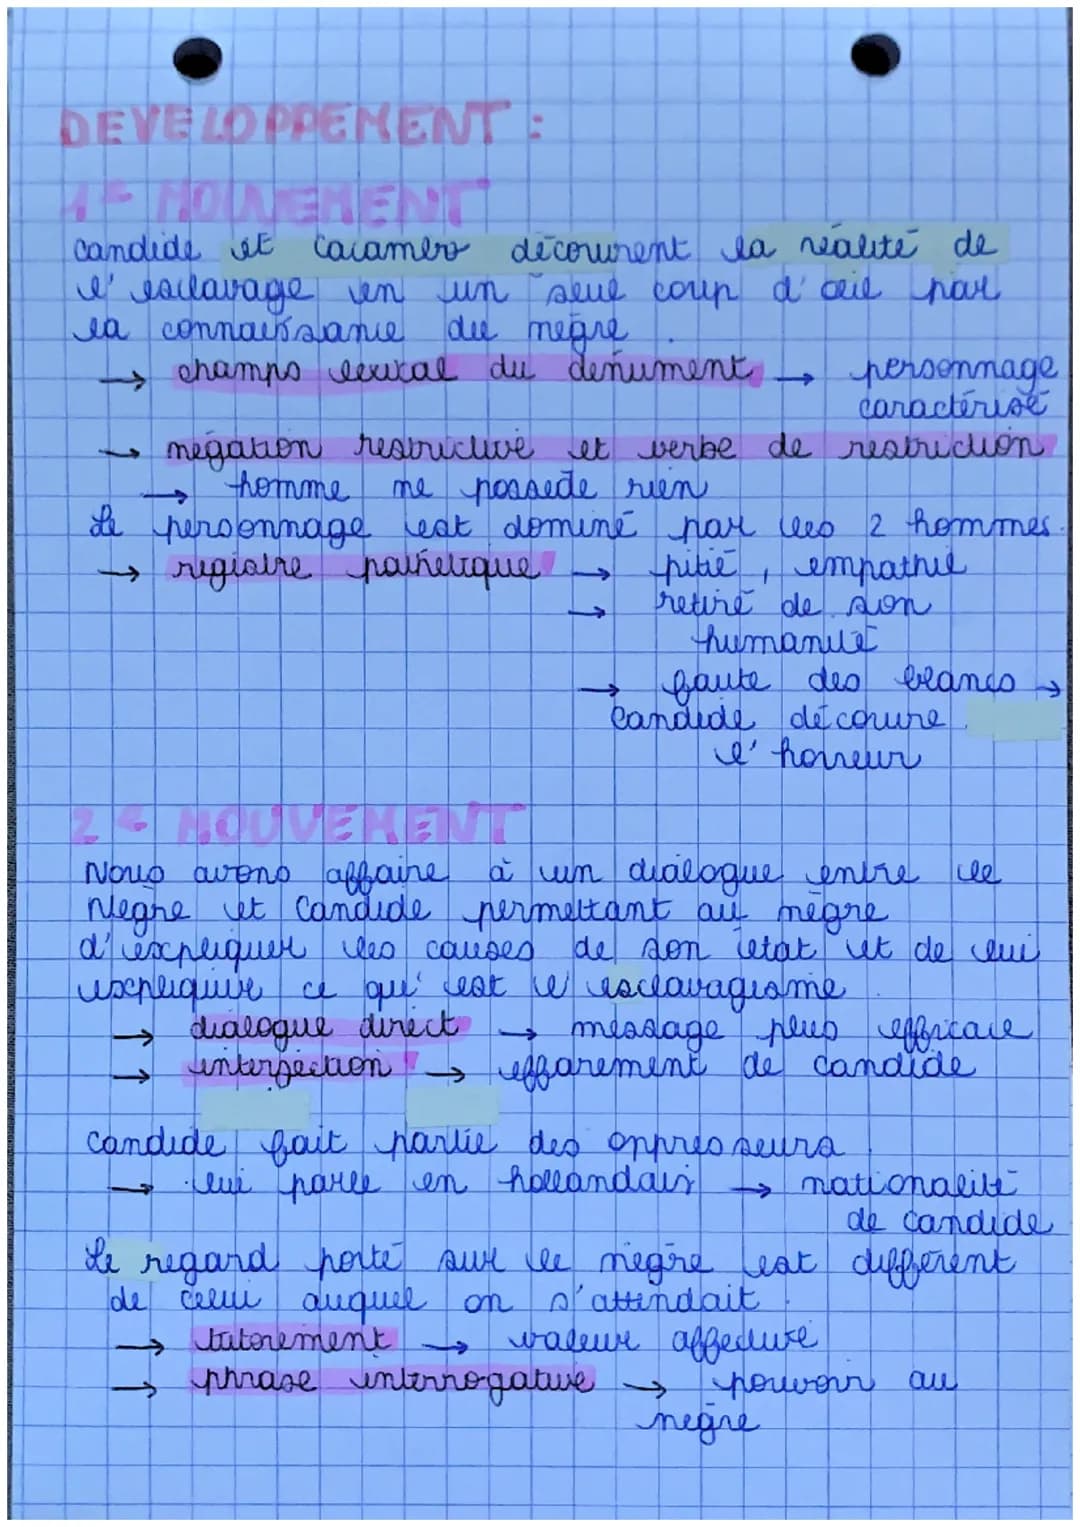 DEVELOPPEMENT :
1e MOUVEMENT
Candide et Cacambo découvrent la réalité de
l'esclavage en un seul coup d'œil par
la connaissance du nègre.
→ champs lexical du dénument → personnage
caractérisé
→ négation restrictive et verbe de restriction
→ homme ne possede rien
Le personnage est dominé par les 2 hommes.
→ registre pathétique → pitié, empathie
→ retiré de son
humanité
→ faute des blancs →
Candide découvre
l'horreur
2e MOUVEMENT
Nous avons affaire à un dialogue entre le
Nègre et Candide permettant au nègre
d'expliquer les causes de son état et de lui
expliquer ce qu'est l'esclavagisme.
→ dialogue direct → message plus efficace
→ interjection → effarement de Candide
Candide fait partie des oppresseurs.
→ lui parle en hollandais → nationalité
de Candide
Le regard porté sur le nègre est différent
de celui auquel on s'attendait.
→ tutoiement → valeur affective
→ phrase interrogative → pouvoir au
nègre